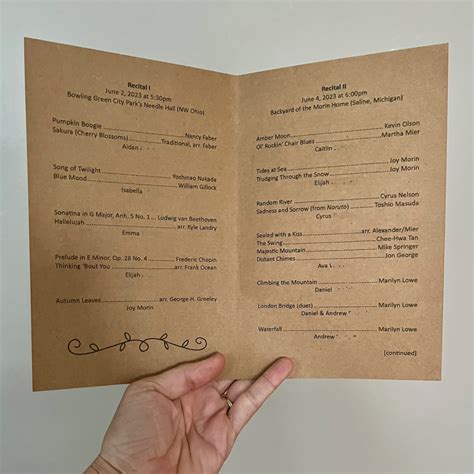 Recital I
June 2, 2023 at 5:30pm
Bowling Green City Park's Needle Hall (NW Ohio)
Pumpkin Boogie Nancy Faber
Sakura (Cherry Blossoms) Traditional, arr. Faber
Aidan
Song of Twilight Yoshinao Nakada
Blue Mood William Gillock
Isabella
Sonatina in G Major, Anh. 5 No. 1 Ludwig van Beethoven
Hallelujah arr. Kyle Landry
Emma
Prelude in E Minor, Op. 28 No. 4 Frederic Chopin
Thinking 'Bout You arr. Frank Ocean
Elijah
Autumn Leaves arr. George H. Greeley
Joy Morin
Recital II
June 4, 2023 at 6:00pm
Backyard of the Morin Home (Saline, Michigan)
Amber Moon Kevin Olson
Ol' Rockin' Chair Blues Martha Mier
Caitlin
Tides at Sea Joy Morin
Trudging Through the Snow Joy Morin
Elijah
Random River Cyrus Nelson
Sadness and Sorrow (from Naruto) Toshio Masuda
Cyrus
Sealed with a Kiss arr. Alexander/Mier
The Swing Chee-Hwa Tan
Majestic Mountain Mike Springer
Distant Chimes Jon George
Ava
Climbing the Mountain Marilyn Lowe
Daniel
London Bridge (duet) Marilyn Lowe
Daniel & Andrew
Waterfall Marilyn Lowe
Andrew
[continued]